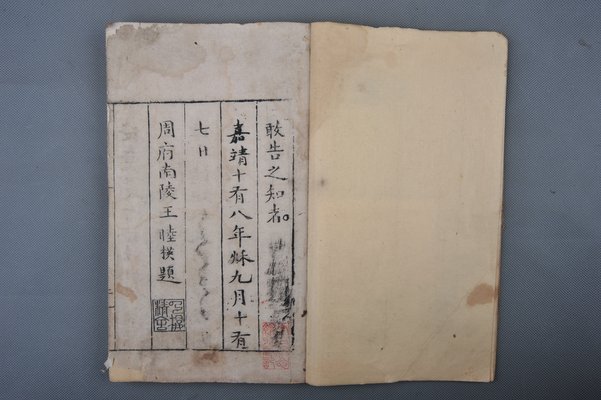 敢告之知者。
嘉靖十有八年秌九月十有
七日
周府南陵王睦楧題